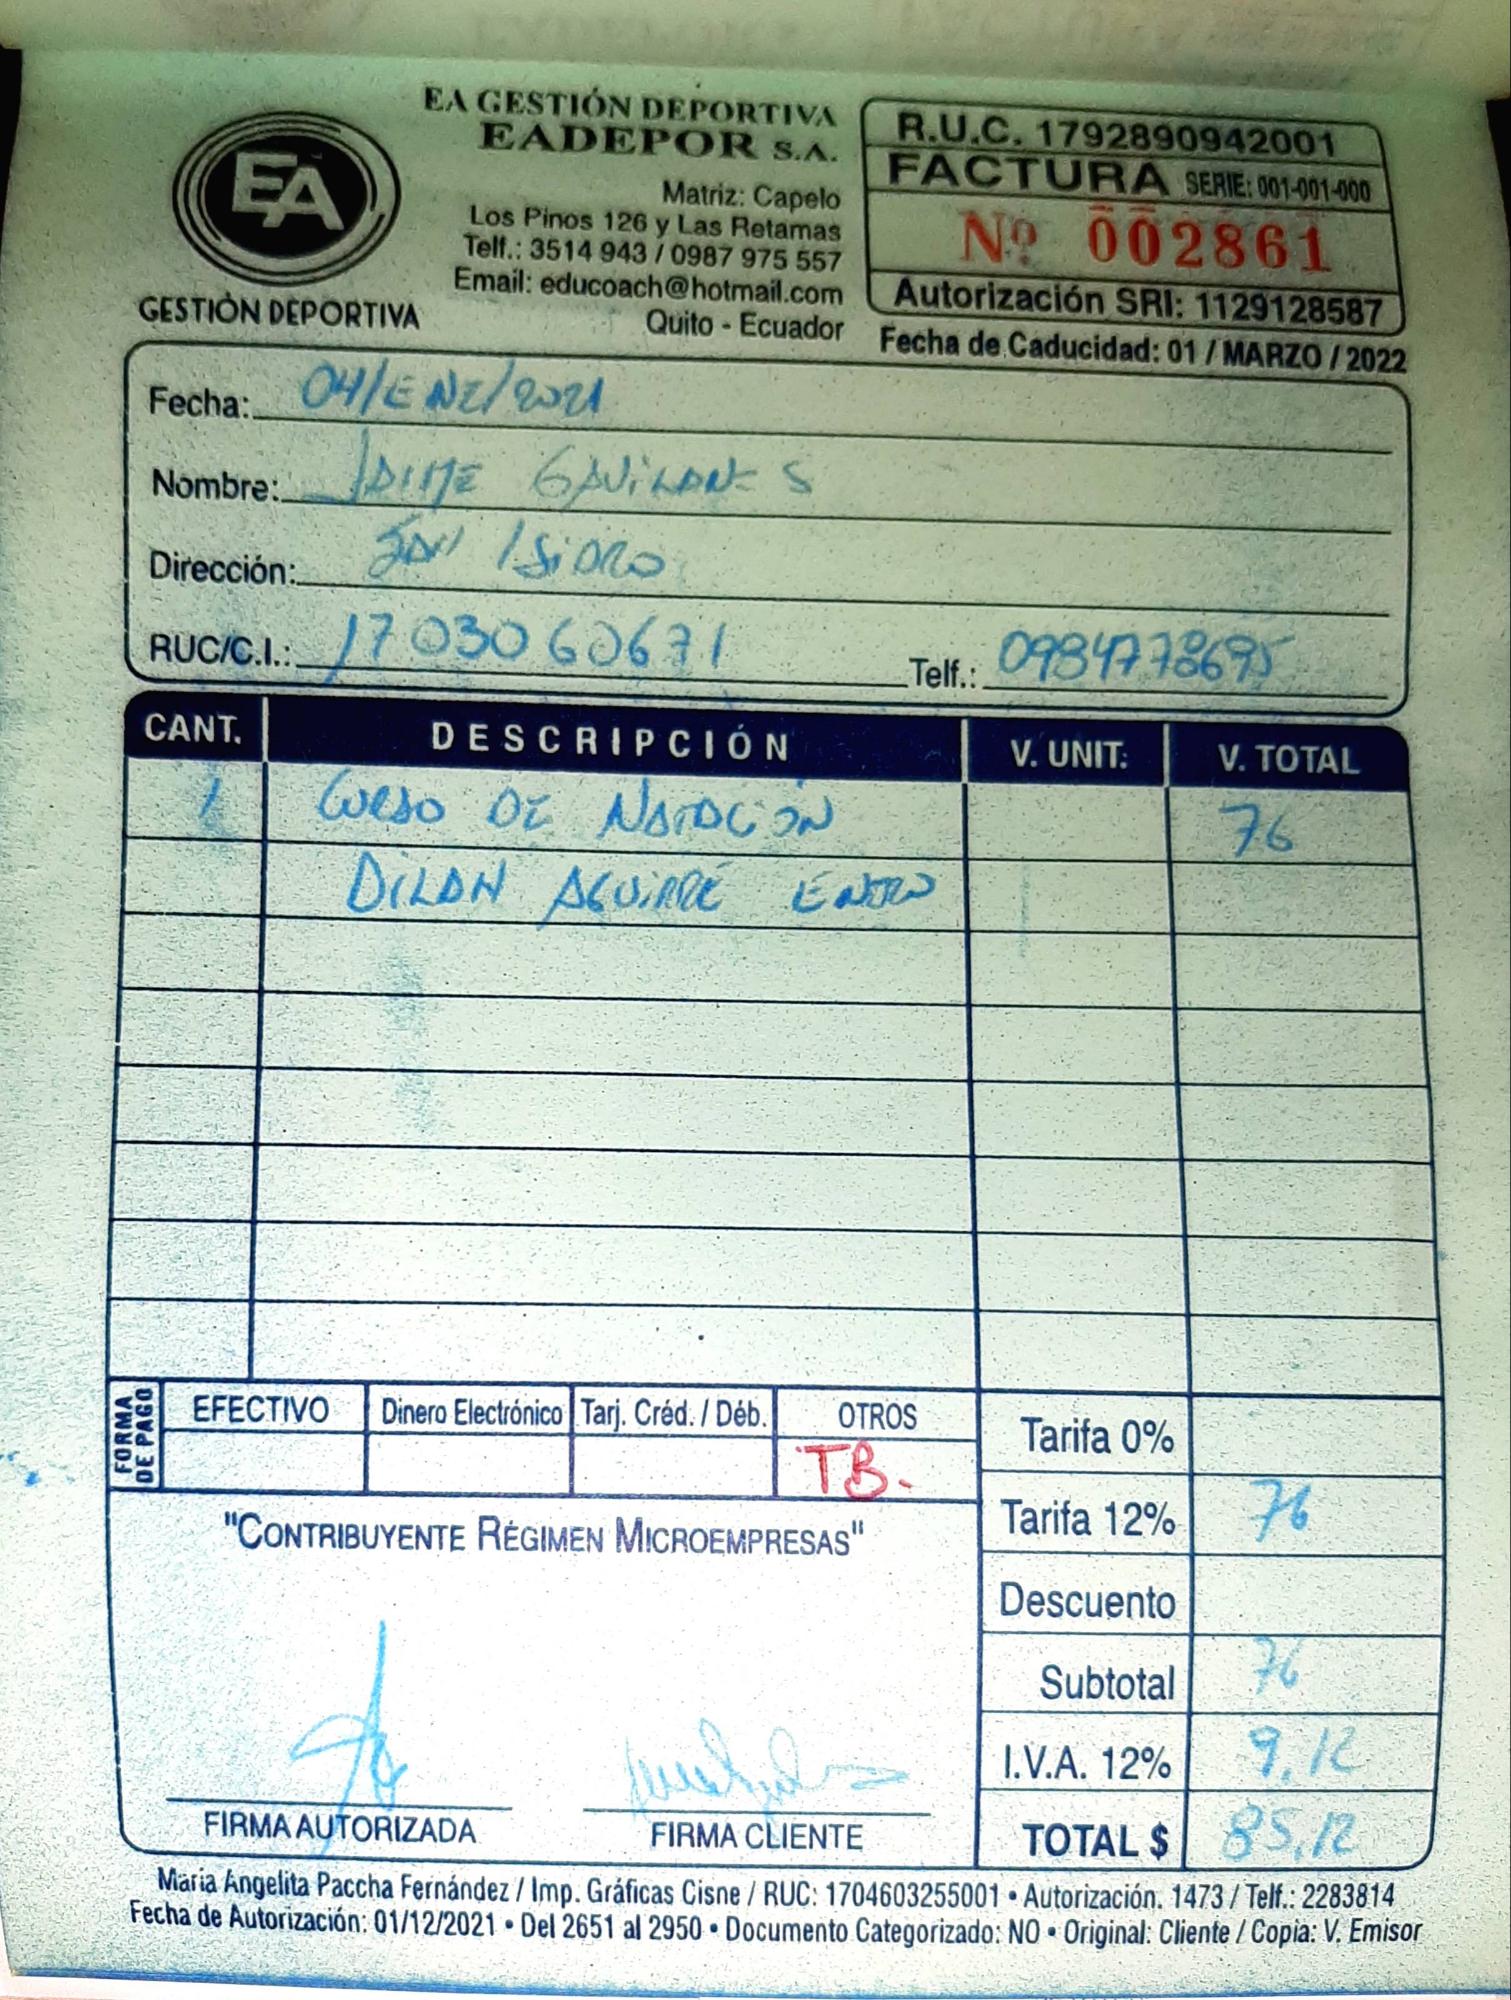 EA GESTIÓN DEPORTIVA
EADEPOR S.A.
EA
GESTIÓN DEPORTIVA
Matriz: Capelo
Los Pinos 126 y Las Retamas
Telf.: 3514 943 / 0987 975 557
Email: educoach@hotmail.com
Quito - Ecuador
R.U.C. 1792890942001
FACTURA SERIE: 001-001-000
Nº 002861
Autorización SRI: 1129128587
Fecha de Caducidad: 01 / MARZO / 2022
Fecha: 04/ENE/2021
Nombre: JAIME GAVILANES
Dirección: SAN ISIDRO
RUC/C.I.: 1703060671 Telf.: 0984778695
CANT. DESCRIPCIÓN V. UNIT. V. TOTAL
1 CURSO DE NATACIÓN 76
DILAN AGUIRRE ENERO
FORMA DE PAGO
EFECTIVO Dinero Electrónico Tarj. Créd. / Déb. OTROS
TB.
Tarifa 0%
Tarifa 12% 76
Descuento
Subtotal 76
I.V.A. 12% 9,12
TOTAL $ 85,12
"CONTRIBUYENTE RÉGIMEN MICROEMPRESAS"
FIRMA AUTORIZADA FIRMA CLIENTE
Maria Angelita Paccha Fernández / Imp. Gráficas Cisne / RUC: 1704603255001 • Autorización. 1473 / Telf.: 2283814
Fecha de Autorización: 01/12/2021 • Del 2651 al 2950 • Documento Categorizado: NO • Original: Cliente / Copia: V. Emisor